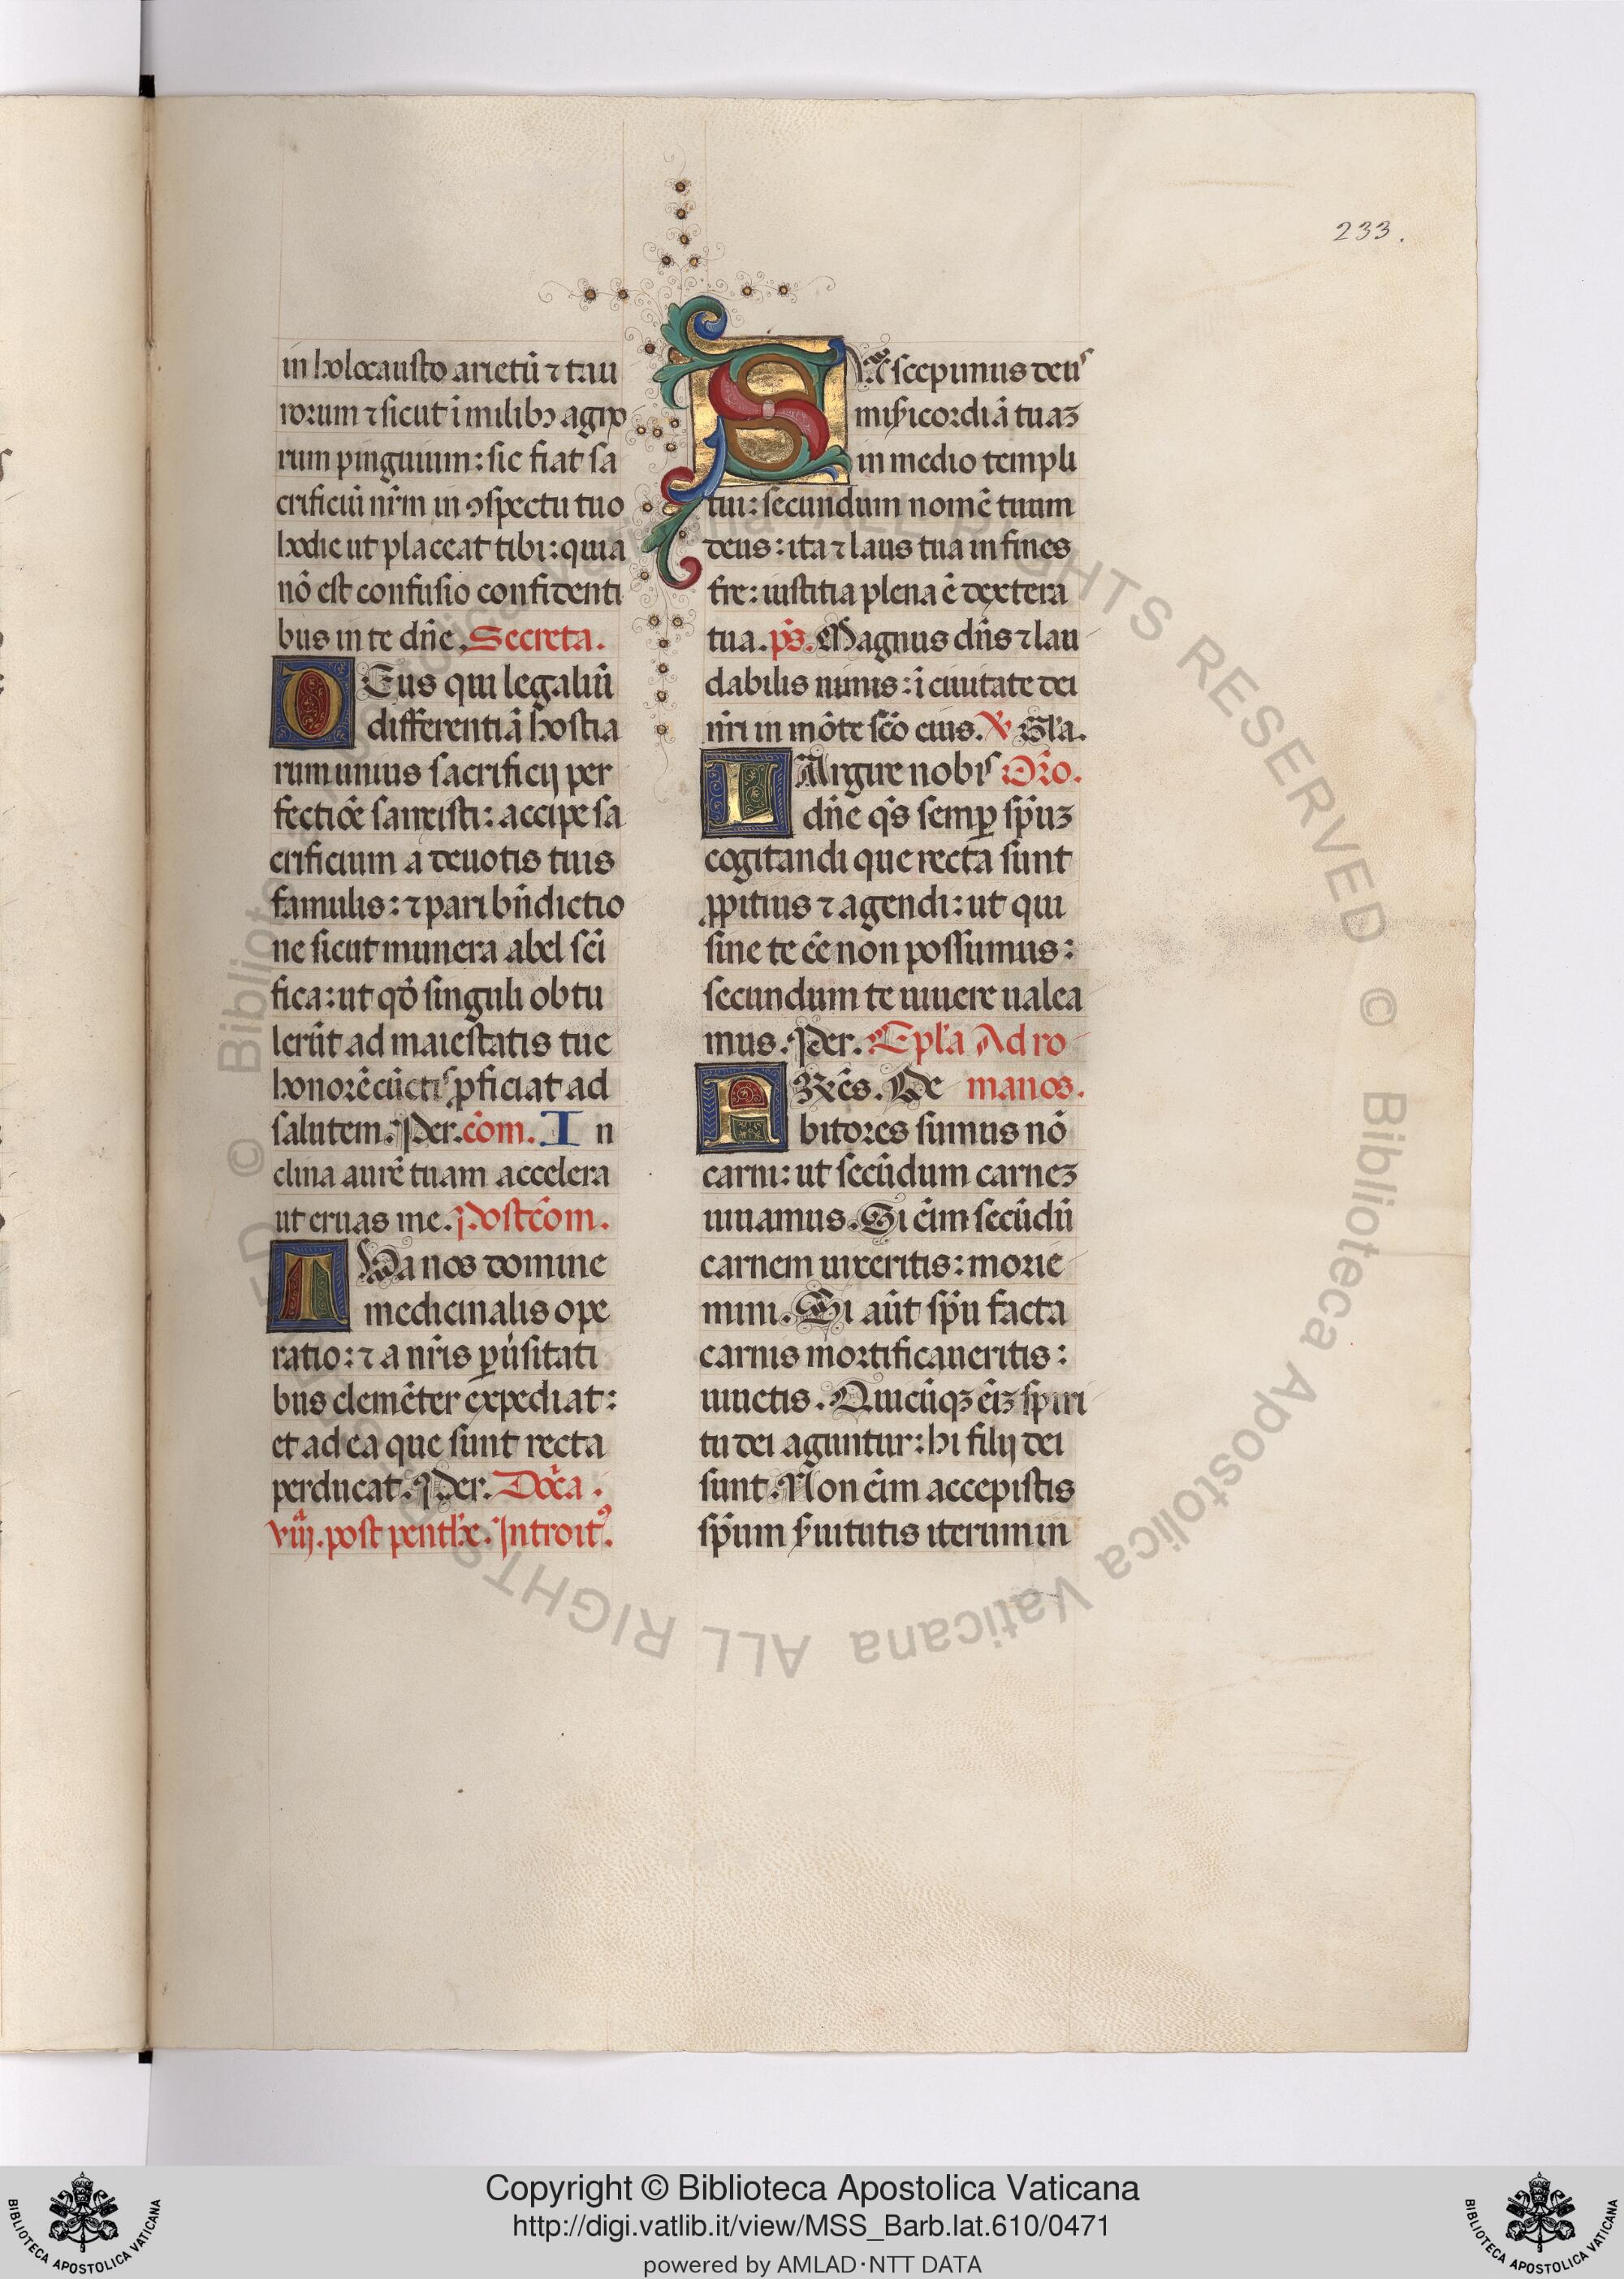 233.
in holocausto arietū ⁊ tau
rorum ⁊ sicut ī milibꝫ agno
rum pinguium: sic fiat sa
crificiū nr̄m in ꝯspectu tuo
hodie ut placeat tibi: quia
nō est confusio confidenti
bus in te dn̄e. Secreta.
DEus qui legaliū
differentiā hostia
rum unius sacrificij per
fectiōe sanxisti: accipe sa
crificium a deuotis tuis
famulis: ⁊ pari bn̄dictio
ne sicut munera abel sc̄i
fica: ut qđ singuli obtu
lerūt ad maiestatis tue
honorē cūctis ꝓficiat ad
salutem. Per. cōm. I n
clina aurē tuam accelera
ut eruas me. Postcōm.
TUa nos domine
medicinalis ope
ratio: ⁊ a nr̄is ꝑuersitati
bus clemēter expediat:
et ad ea que sunt recta
perducat. Per. Doīca.
viij. post penthē. Introitꝰ.
SUscepimus deus
mīsicordiā tuaꝫ
in medio templi
tui: secundum nomē tuum
deus: ita ⁊ laus tua in fines
tr̄e: iustitia plena ē dextera
tua. pš. Magnus dn̄s ⁊ lau
dabilis nimis: ī ciuitate dei
nr̄i in mōte sc̄o eius. ℣. Gl'a.
LArgire nobis Or̄o.
dn̄e qs̄ semꝑ sp̄uꝫ
cogitandi que recta sunt
ꝓpitius ⁊ agendi: ut qui
sine te eē non possumus:
secundum te uiuere ualea
mus. Per. Epl'a Ad ro
FRēs. De manos.
bitores sumus nō
carni: ut secūdum carneꝫ
uiuamus. Si eīm secūdū
carnem uixeritis: morie
mini. Si aūt sp̄u facta
carnis mortificaueritis:
uiuetis. Quicūqꝫ eīꝫ spiri
tu dei aguntur: hi filij dei
sunt. Non eīm accepistis
sp̄um s̄uitutis iterum in
Copyright © Biblioteca Apostolica Vaticana
http://digi.vatlib.it/view/MSS_Barb.lat.610/0471
powered by AMLAD·NTT DATA
BIBLIOTECA APOSTOLICA VATICANA
BIBLIOTECA APOSTOLICA VATICANA
© Biblioteca Apostolica Vaticana ALL RIGHTS RESERVED
© Biblioteca Apostolica Vaticana ALL RIGHTS RESERVED